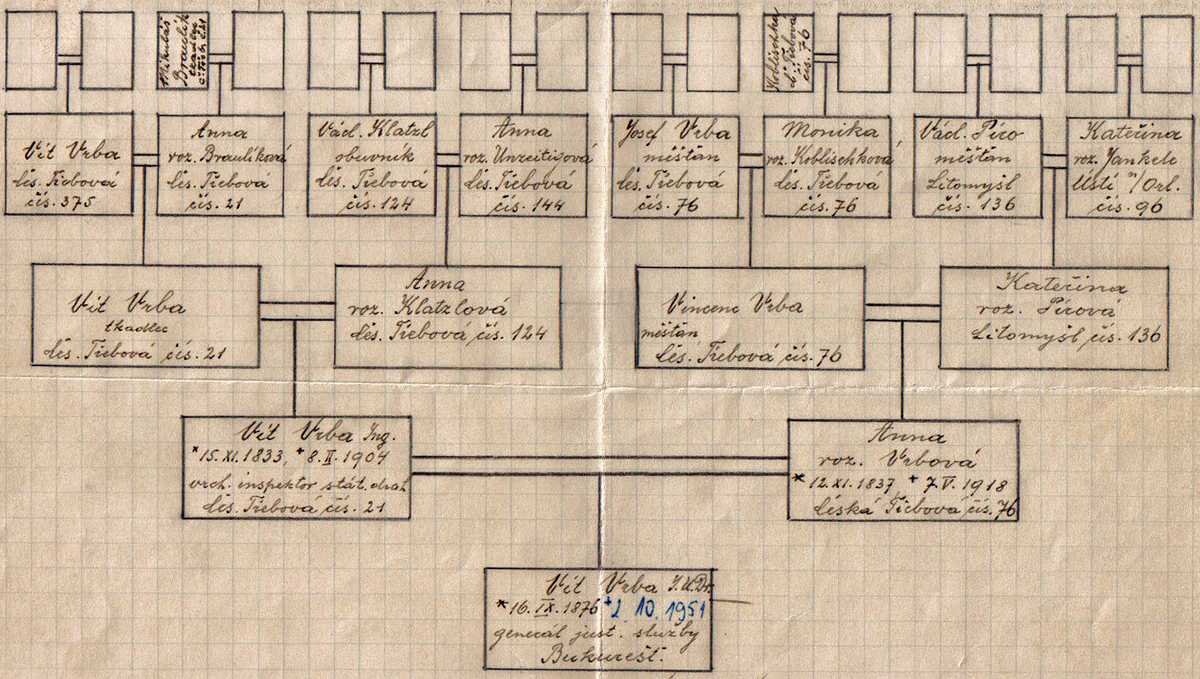 Mikuláš
Braulík
tkadlec
č. Třeb. č. 21
Koblischka
č. Třebová
čís. 76
Vít Vrba
čés. Třebová
čís. 375
Anna
roz. Braulíková
čés. Třebová
čís. 21
Václ. Klatzl
obuvník
čés. Třebová
čís. 124
Anna
roz. Unzeitigová
čés. Třebová
čís. 144
Josef Vrba
měštán
čés. Třebová
čís. 76
Monika
roz. Koblischková
čés. Třebová
čís. 76
Václ. Píro
měštán
Litomyšl
čís. 136
Kateřina
roz. Jankele
Ústí n/Orl.
čís. 96
Vít Vrba
tkadlec
čés. Třebová čís. 21
Anna
roz. Klatzlová
čés. Třebová čís. 124
Vincenc Vrba
měštán
čés. Třebová čís. 76
Kateřina
roz. Pírová
Litomyšl čís. 136
Vít Vrba Ing.
*15. XI. 1833, +8. II. 1904
vrch. inspektor stát. drah
čés. Třebová čís. 21
Anna
roz. Vrbová
*12. XI. 1837 +7. V. 1918
česká Třebová čís. 76
Vít Vrba J.U.Dr.
*16. IX. 1876 +2. 10. 1951
generál just. služby
Bukurešť.